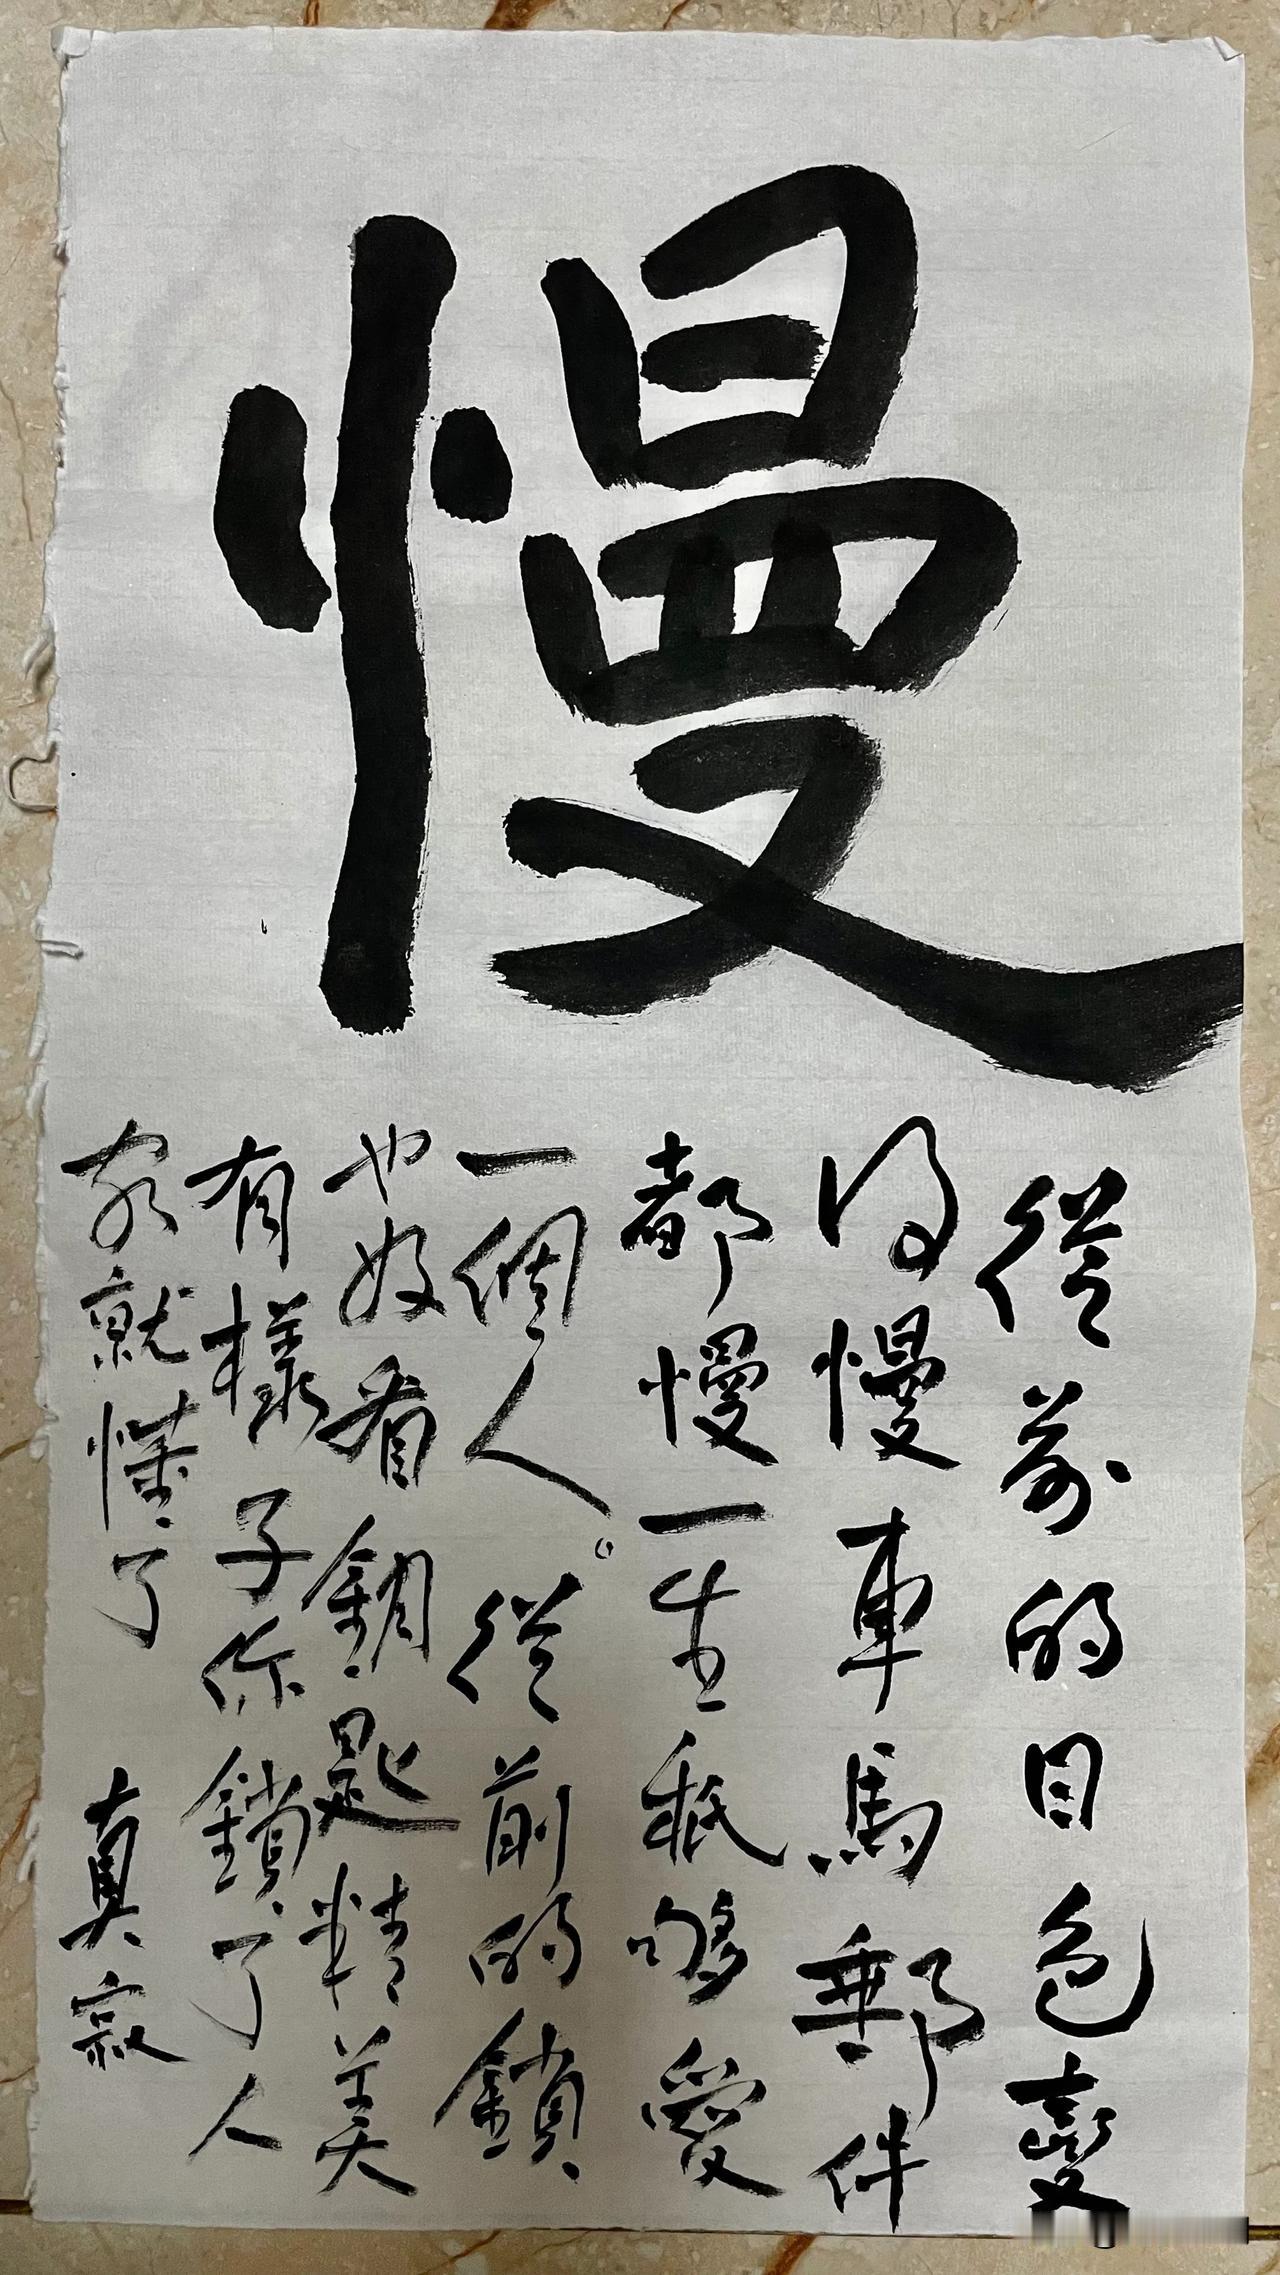 慢
從前的日色變
得慢車馬郵件
都慢一生祇够愛
一個人。從前的鎖
也好看鑰匙精美
有樣子你鎖了人
家就懂了
真寂